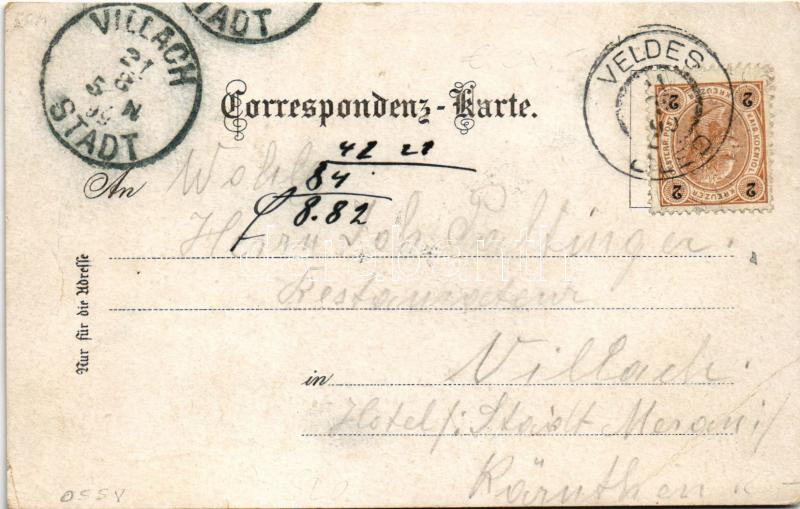 VILLACH
STADT
21
8
5 N
99
STADT
VELDES
2 2
KREUZER
2 2
Correspondenz-Karte.
42 21
84
8.82
An Wohl
Herrn Joh.
Restaurateur
Nur für die Adresse
in Villach
Hotel /: Stadt Meran :/
Kärnthen